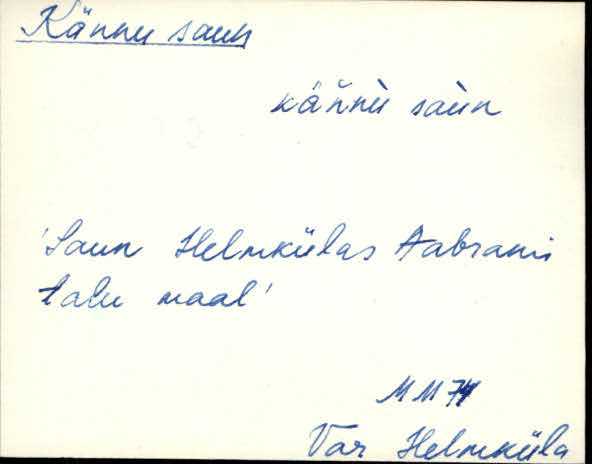 Kännu saun
känǹù saùn
'Saun Helmkülas Aabrami
talu maal'
MM 74
Var Helmküla